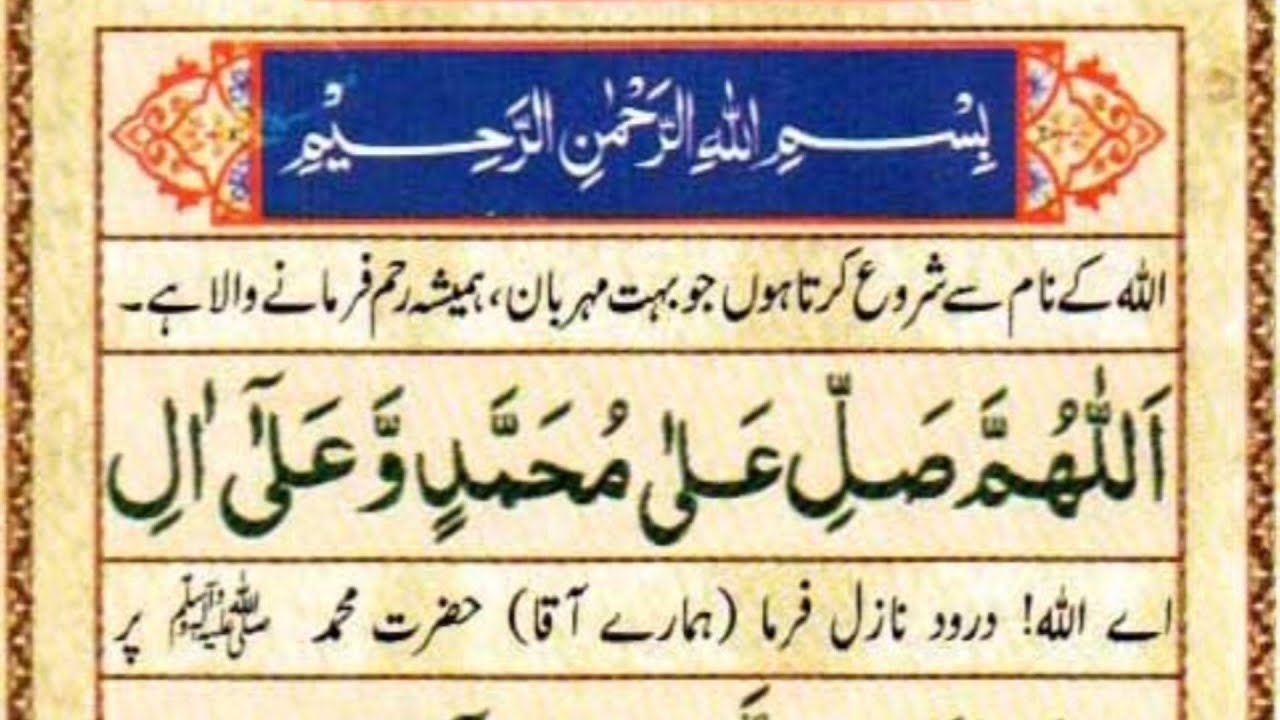 بِسْمِ اللهِ الرَّحْمٰنِ الرَّحِيْمِ
اللہ کے نام سے شروع کرتا ہوں جو بہت مہربان، ہمیشہ رحم فرمانے والا ہے۔
اَللّٰهُمَّ صَلِّ عَلٰى مُحَمَّدٍ وَّ عَلٰٓى اٰلِ
اے اللہ! درود نازل فرما (ہمارے آقا) حضرت محمد ﷺ پر